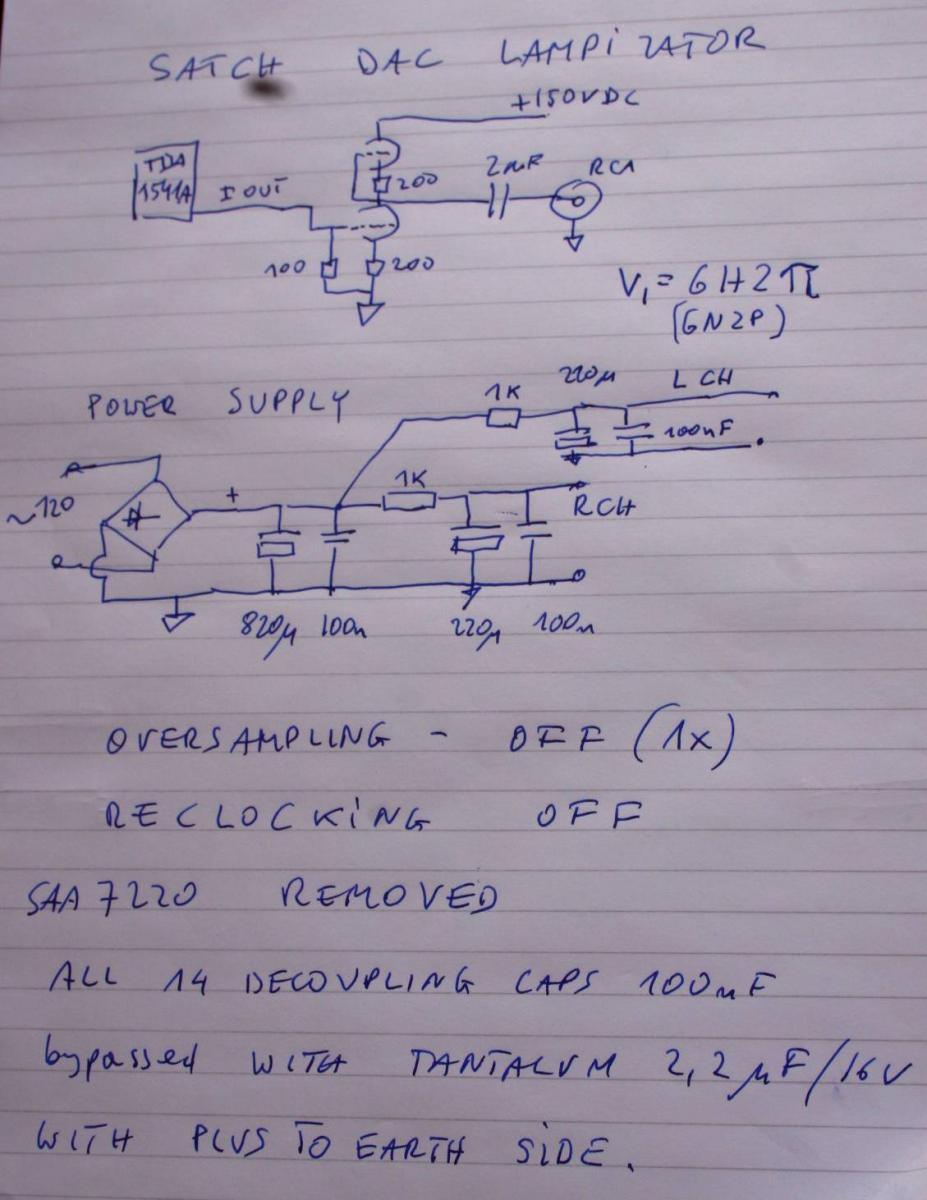 SATCH DAC LAMPIZATOR
+150VDC
TDA
1541A
I OUT
200
2mF
RCA
100
200
V1 = 6H2П
(6N2P)
POWER SUPPLY
1K
220µ
L CH
100nF
~120
+
1K
RCH
820µ
100n
220µ
100n
OVERSAMPLING - OFF (1x)
RECLOCKING OFF
SAA 7220 REMOVED
ALL 14 DECOUPLING CAPS 100nF
bypassed WITH TANTALUM 2,2µF/16V
WITH PLUS TO EARTH SIDE.